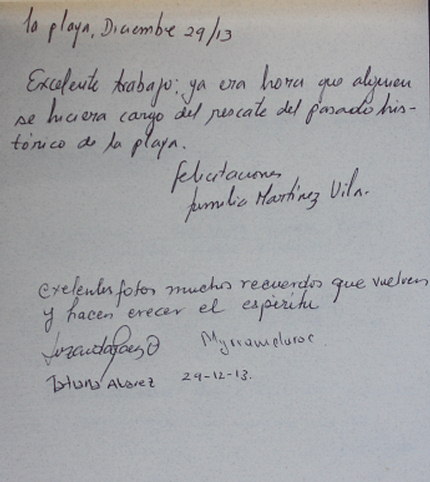 la playa, Diciembre 29/13
Excelente trabajo; ya era hora que alguien
se hiciera cargo del rescate del pasado his-
tórico de la playa.
Felicitaciones
familia Martínez Vila.
exelentes fotos muchos recuerdos que vuelven
y hacen crecer el espiritu
Tatiana Alvarez 29-12-13.